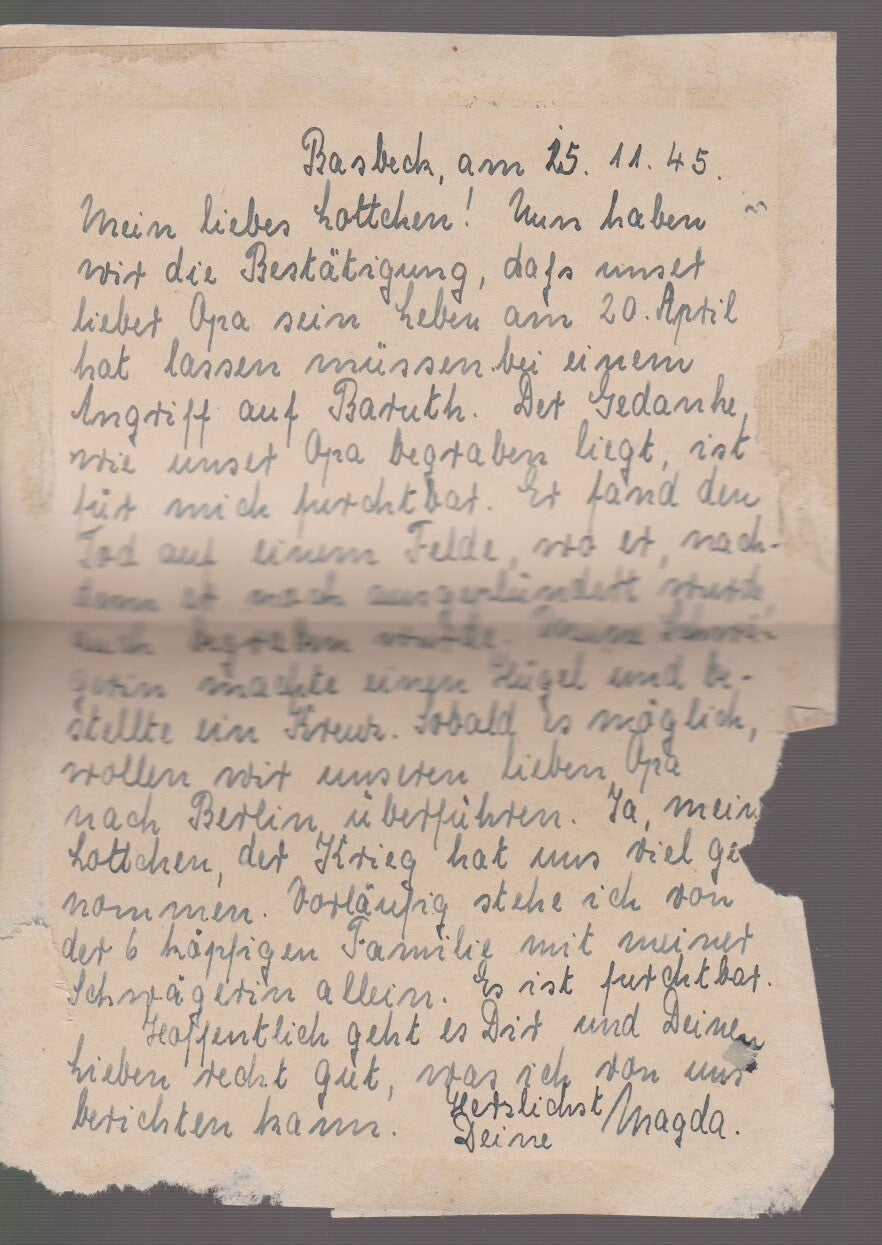 Basbeck, am 25. 11. 45.
Mein liebes Lottchen! Nun haben
wir die Bestätigung, daß unser
lieber Opa sein Leben am 20. April
hat lassen müssen bei einem
Angriff auf Baruth. Der Gedanke,
wie unser Opa begraben liegt, ist
für mich furchtbar. Er fand den
Tod auf einem Felde, wo er, nach-
dem er noch ausgeplündert wurde,
auch begraben wurde. Meine Schwä-
gerin machte einen Hügel und be-
stellte ein Kreuz. Sobald es möglich,
wollen wir unseren lieben Opa
nach Berlin überführen. Ja, mein
Lottchen, der Krieg hat uns viel ge
nommen. Vorläufig stehe ich von
der 6 köpfigen Familie mit meiner
Schwägerin allein. Es ist furchtbar.
Hoffentlich geht es Dir und Deinen
Lieben recht gut, was ich von uns
berichten kann. Herzlichst
Deine Magda.